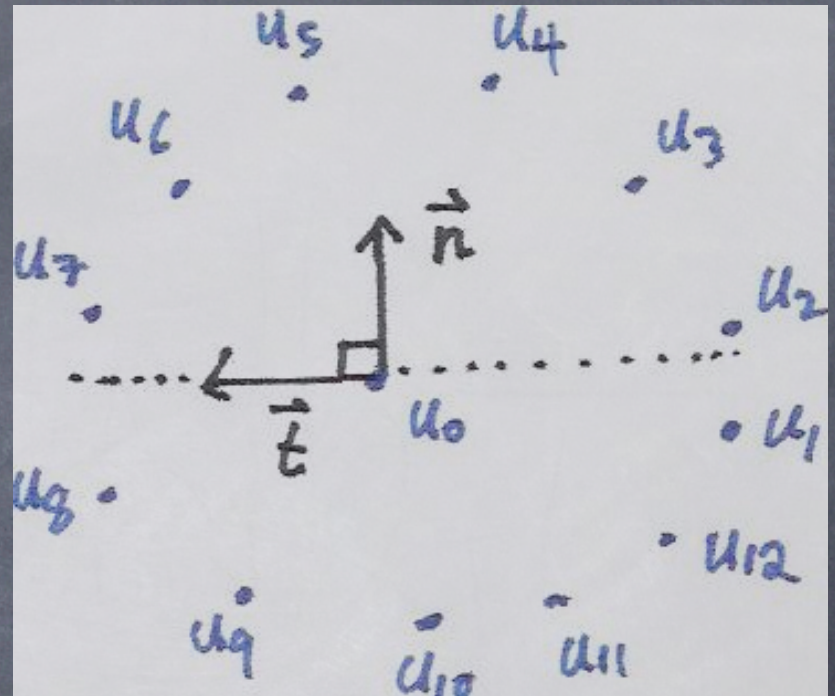 u5
u4
u6
u3
n⃗
u7
u2
u0
u1
t⃗
u8
u12
u9
u11
u10